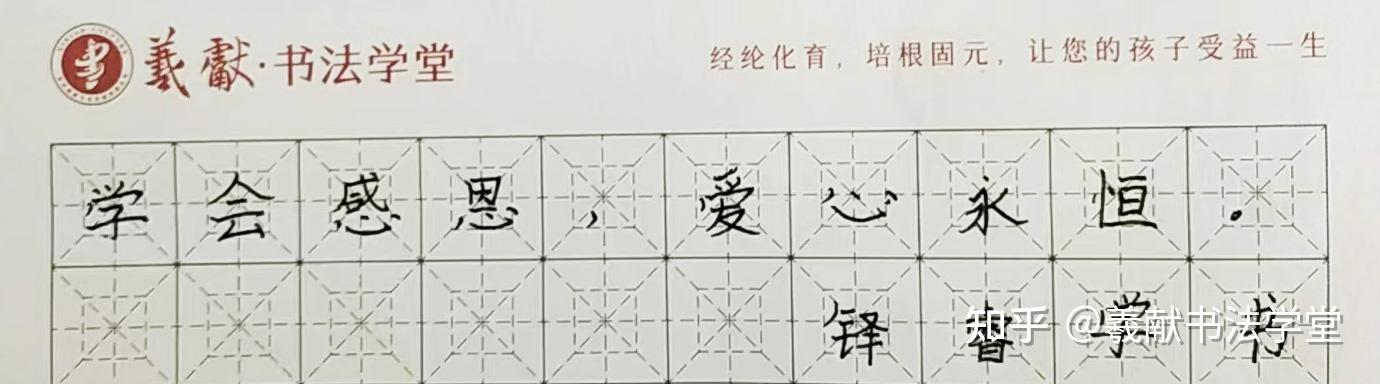 羲獻·书法学堂
经纶化育，培根固元，让您的孩子受益一生
学会感恩，爱心永恒。
铎睿学书
知乎 @羲献书法学堂